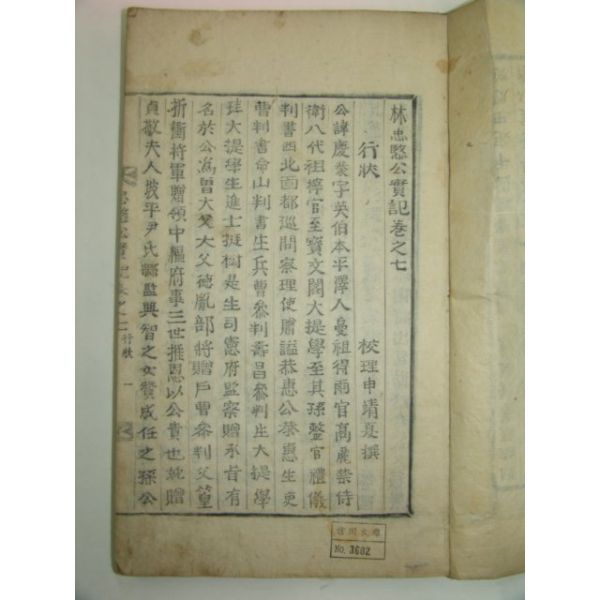 林忠愍公實記卷之七
行狀 校理申靖夏撰
公諱慶業字英伯本平澤人曼祖得雨官高麗禁侍
衛八代祖擰官至寶文閣大提學至其孫整官禮儀
判書西北面都巡問察理使贈謚恭惠公恭惠生吏
曹判書命山判書生兵曹叅判壽昌叅判生大提學
大提學生進士挺樹是生司憲府監察贈承旨有
名於公爲曾大父大父德胤部將贈戶曹叅判父篁
折衝將軍贈領中樞府事三世推恩以公貴也純贈
貞敬夫人坡平尹氏縣監興智之女贊成任之孫公
忠愍公實記 行狀 一
No. 3602